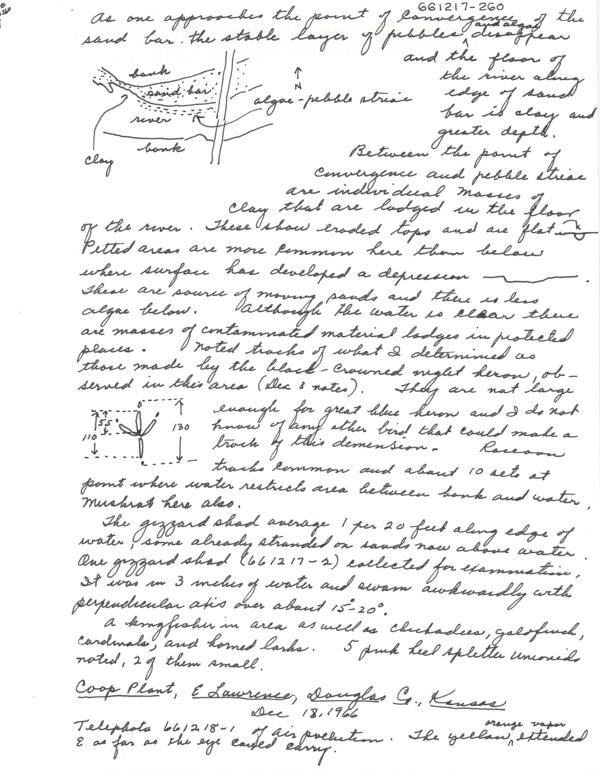 661217-260
As one approaches the point of convergence of the
and algae
sand bar. the stable layer of pebbles disappear
and the floor of
the river along
edge of sand
bar is clay and
greater depth.
bank
sand bar
river
bank
clay
N
algae-pebble striae
Between the point of
convergence and pebble striae
are individual masses of
clay that are lodged in the floor
of the river. These show eroded tops and are flat
Pitted areas are more common here than below
where surface has developed a depression
These are source of moving sands and there is less
algae below. Although the water is clear there
are masses of contaminated material lodges in protected
places. Noted tracks of what I determined as
those made by the black-crowned night heron, ob-
served in this area (Dec 3 notes). They are not large
enough for great blue heron and I do not
know of any other bird that could make a
track of this demension. Racoon
tracks common and about 10 sets at
110
55
130
point where water restricts area between bank and water.
Muskrat here also.
The gizzard shad average 1 per 20 feet along edge of
water, some already stranded on sands now above water.
One gizzard shad (661217-2) collected for examination.
It was in 3 inches of water and swam awkwardly with
perpendicular axis over about 15°-20°.
A kingfisher in area as well as chickadees, goldfinch,
cardinals, and horned larks. 5 pink heel splitter unionids
noted, 2 of them small.
Coop Plant, E Lawrence, Douglas Co., Kansas
Dec 18, 1966
orange vapor
Telephoto 661218-1 of air pollution. The yellow extended
E as far as the eye could carry.